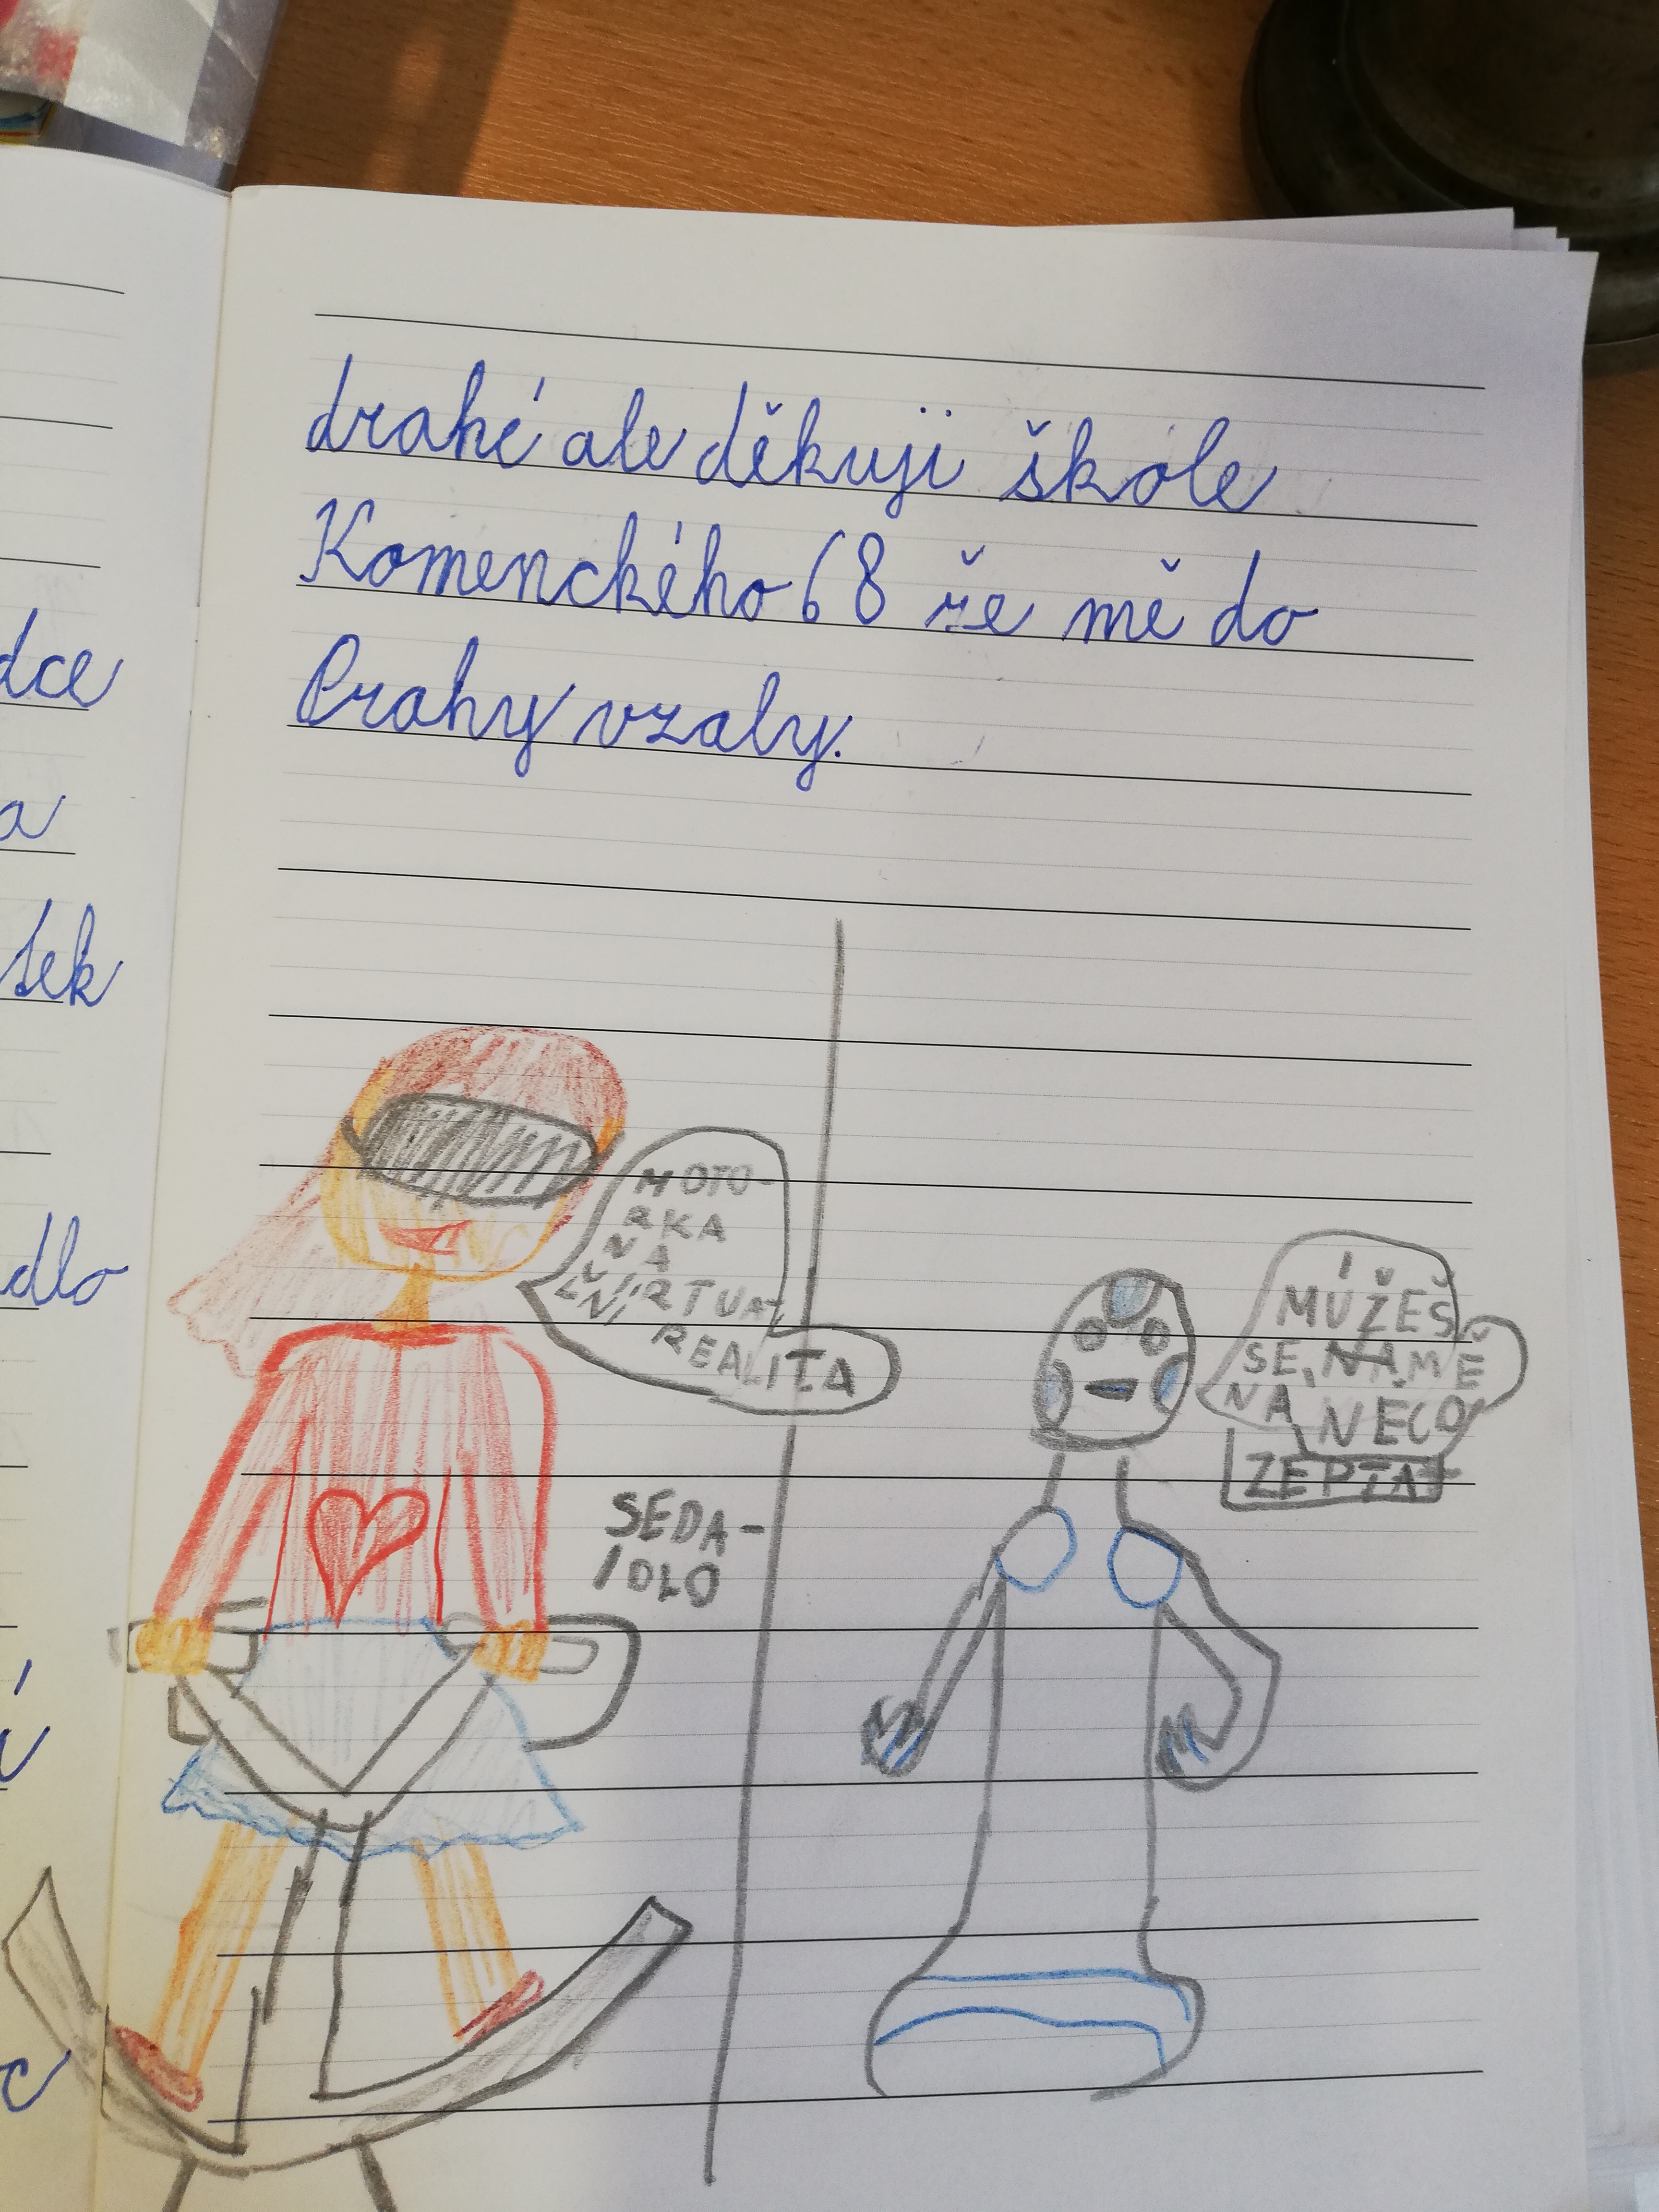 dce
a
tek
dlo
drahé ale děkuji škole
Komenckého 68 že mě do
Prahy vzaly.
MOTO-
RKA
NA
VIRTUA-
LNÍ REALITA
SEDA-
IDLO
MŮŽEŠ
SE, NAMĚ
NA NĚCO
ZEPTAT